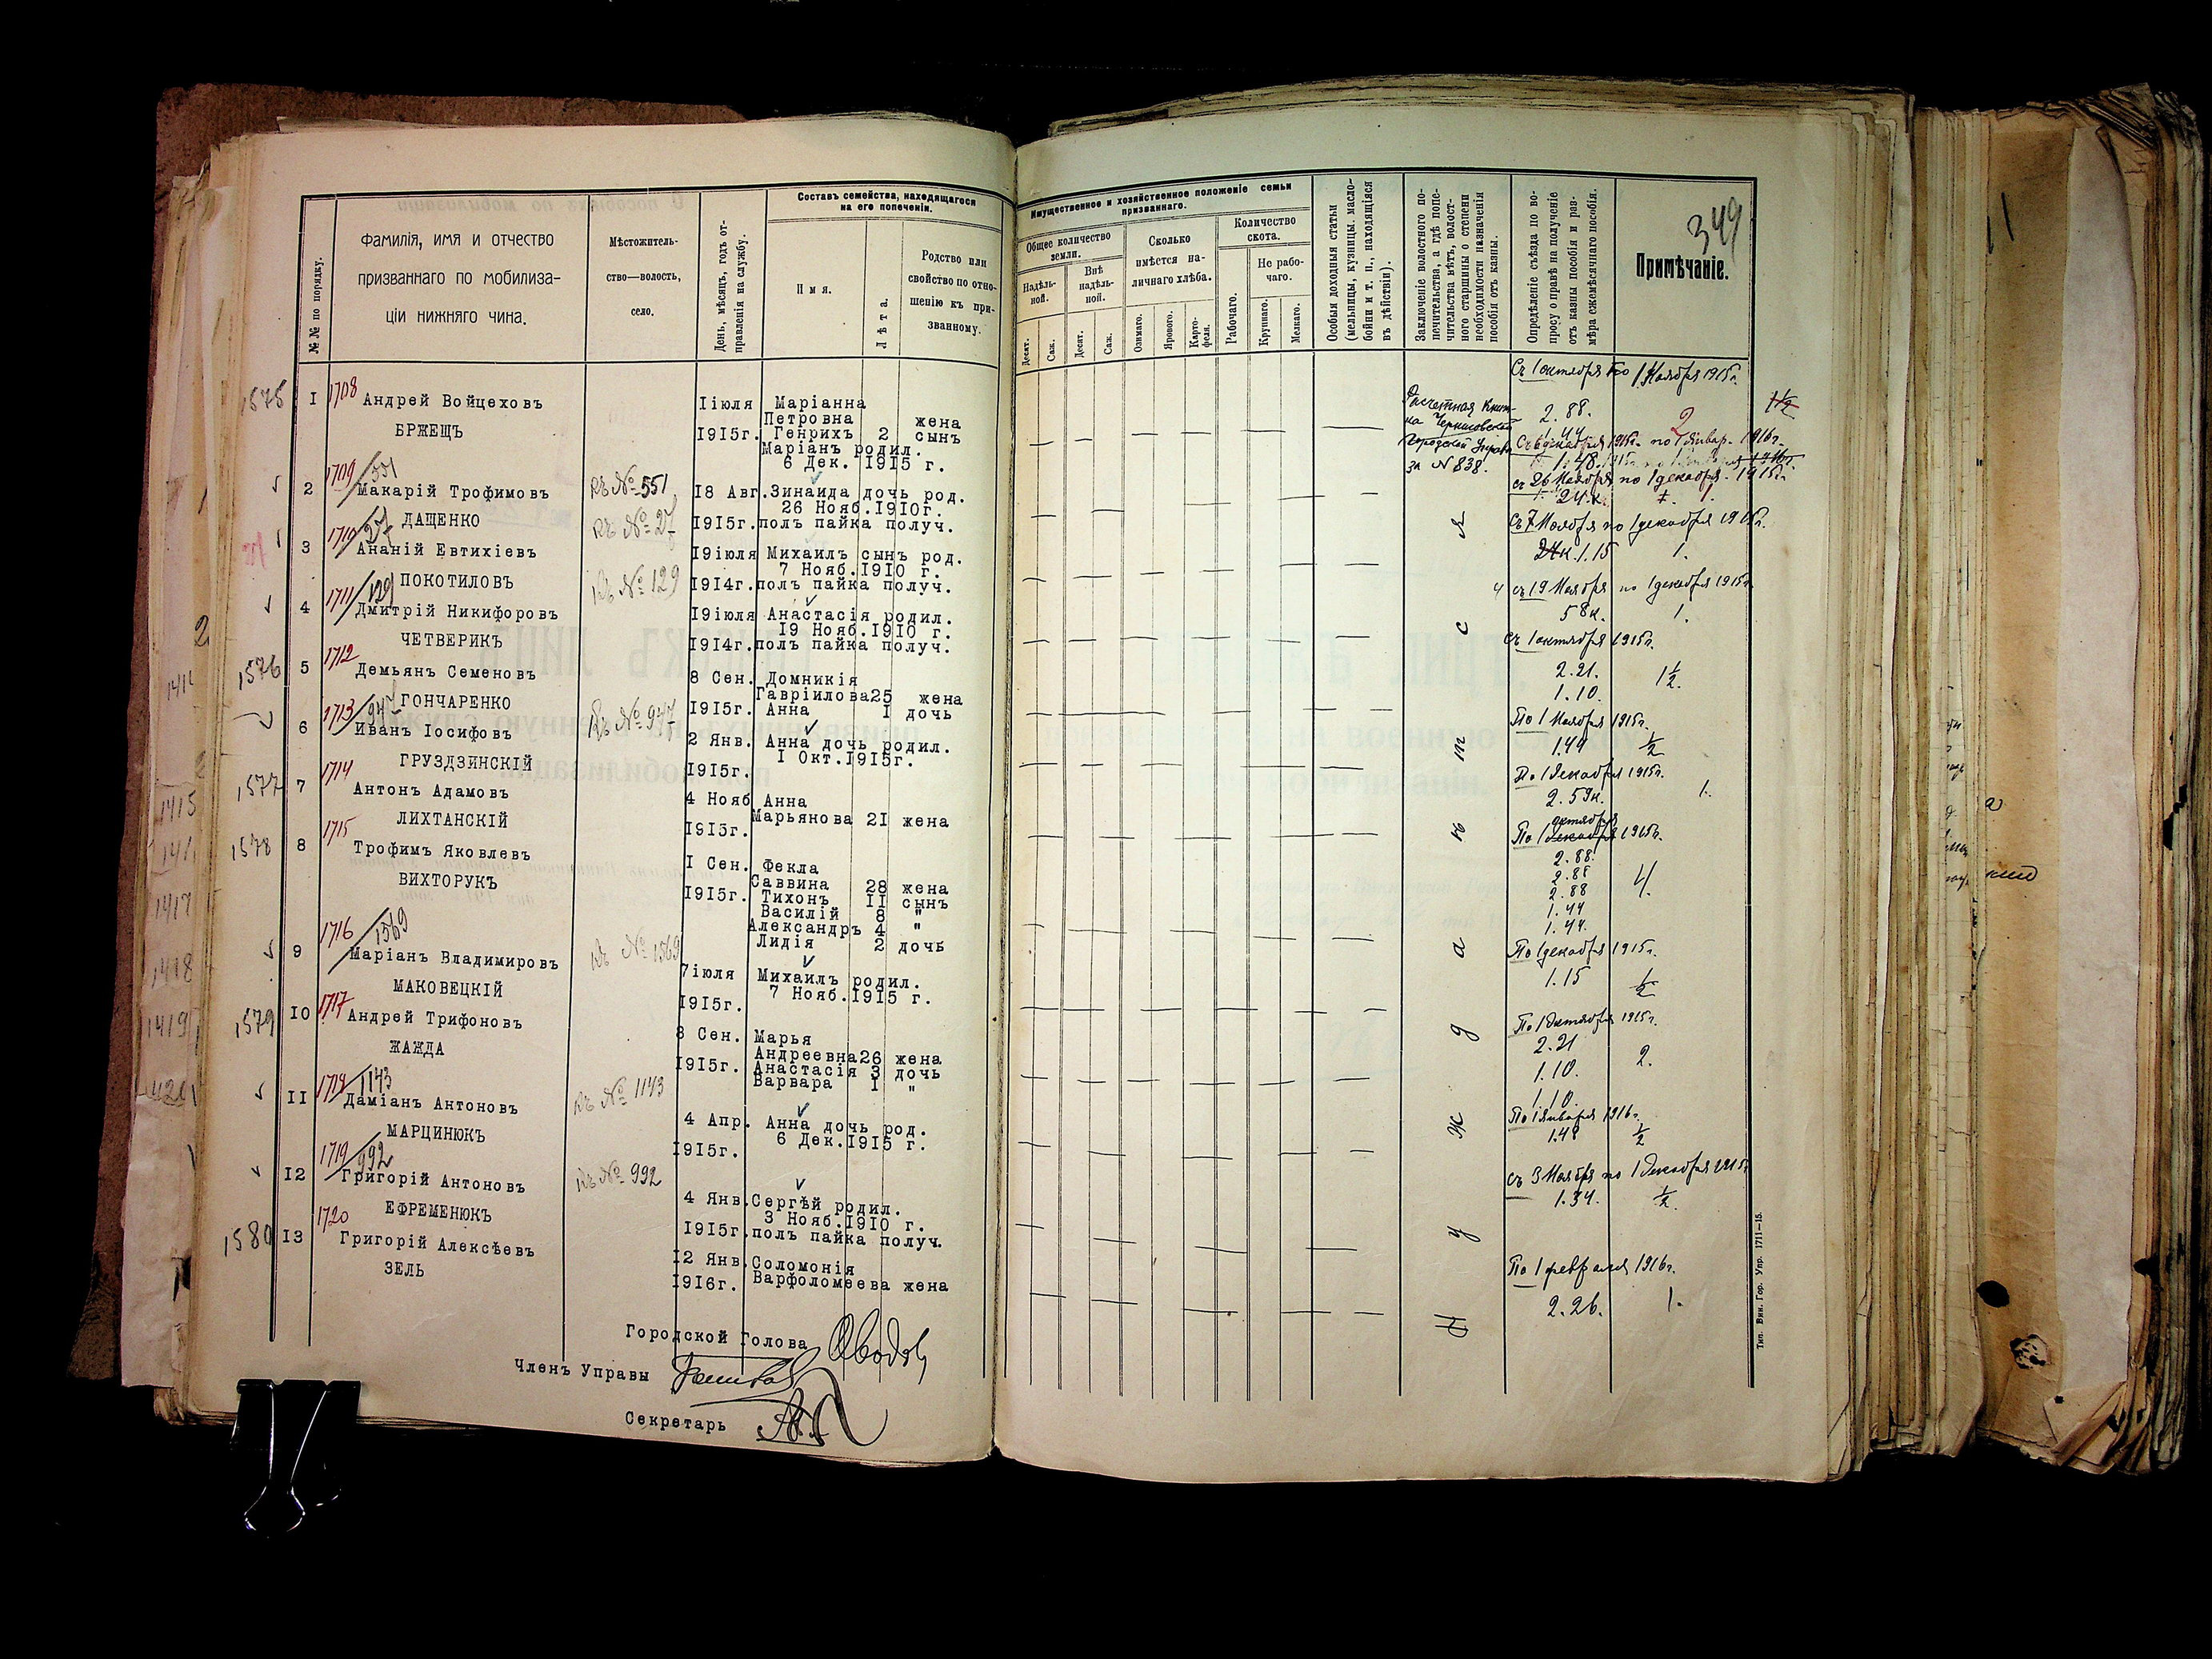 349
№№ по порядку.
Фамилія, имя и отчество
призваннаго по мобилиза-
ціи нижняго чина.
Мѣстожитель-
ство—волость,
село.
День, мѣсяцъ, годъ от-
правленія на службу.
Составъ семейства, находящагося
на его попеченіи.
Имя.
Лѣта.
Родство или
свойство по отно-
шенію къ при-
званному.
Имущественное и хозяйственное положеніе семьи
призваннаго.
Общее количество
земли.
Надѣль-
ной.
Внѣ
надѣль-
ной.
Десят.
Саж.
Десят.
Саж.
Сколько
имѣется на-
личнаго хлѣба.
Озимаго.
Ярового.
Карто-
феля.
Количество
скота.
Рабочаго.
Не рабо-
чаго.
Крупнаго.
Мелкаго.
Особыя доходныя статьи
(мельницы, кузницы. масло-
бойни и т. п., находящіяся
въ дѣйствіи).
Заключеніе волостного по-
печительства, а гдѣ попе-
чительства нѣтъ, волост-
ного старшины о степени
необходимости назначенія
пособія отъ казны.
Опредѣленіе съѣзда по во-
просу о правѣ на полученіе
отъ казны пособія и раз-
мѣра ежемѣсячнаго пособія.
Примѣчаніе.
1575 I 1708 Андрей Войцеховъ
БРЖЕЩЪ
Iіюля
I9I5г.
Маріанна
Петровна жена
Генрихъ 2 сынъ
Маріанъ родил.
6 Дек. I9I5 г.
Расчетная Книж-
ка Черниговской
Городской Управы
за № 838.
Съ 1 октября по 1 Ноября 1915г.
2.88. 2 1½
1.44
Съ 6 декабря 1915г. по 1 Январ. 1916г.
1.48.
2 1709/551 Макарій Трофимовъ
ДАЩЕНКО
къ № 551
I8 Авг.
I9I5г.
Зинаида дочь род.
26 Нояб.I9I0г.
полъ пайка получ.
съ 26 Ноября по 1 декабря 1915г.
24к. 1.
3 1710/27 Ананій Евтихіевъ
ПОКОТИЛОВЪ
къ № 27
I9іюля
I9I4г.
Михаилъ сынъ род.
7 Нояб.I9I0 г.
полъ пайка получ.
Съ 7 Ноября по 1 декабря 1915г.
24к. 1.15 1.
4 1711/129 Дмитрій Никифоровъ
ЧЕТВЕРИКЪ
къ № 129
I9іюля
I9I4г.
Анастасія родил.
I9 Нояб.I9I0 г.
полъ пайка получ.
съ 19 Ноября по 1 декабря 1915г.
58к. 1.
1576 5 1712 Демьянъ Семеновъ
ГОНЧАРЕНКО
8 Сен.
I9I5г.
Домникія
Гавріилова25 жена
Анна I дочь
Съ 1 октября 1915г.
2.21. 1½.
1.10.
6 1713/947 Иванъ Іосифовъ
ГРУЗДЗИНСКІЙ
къ № 947
2 Янв.
I9I5г.
Анна дочь родил.
I Окт.I9I5г.
По 1 Ноября 1915г.
1.44 ½
1577 7 1714 Антонъ Адамовъ
ЛИХТАНСКІЙ
4 Нояб
I9I5г.
Анна
Марьянова 2I жена
По 1 декабря 1915г.
2.59к. 1.
1578 8 1715 Трофимъ Яковлевъ
ВИХТОРУКЪ
I Сен.
I9I5г.
Фекла
Саввина 28 жена
Тихонъ II сынъ
Василій 8 "
Александръ 4 "
Лидія 2 дочь
октября
По 1 декабря 1915г.
2.88.
2.88 4.
2.88
1.44
1.44.
9 1716/1569 Маріанъ Владимировъ
МАКОВЕЦКІЙ
къ № 1569
7іюля
I9I5г.
Михаилъ родил.
7 Нояб.I9I5 г.
По 1 декабря 1915г.
1.15 ½
1579 I0 1717 Андрей Трифоновъ
ЖАЖДА
8 Сен.
I9I5г.
Марья
Андреевна26 жена
Анастасія 3 дочь
Варвара I "
По 1 Октября 1915г.
2.21 2.
1.10.
1.10.
II 1718/1143 Даміанъ Антоновъ
МАРЦИНЮКЪ
къ № 1143
4 Апр.
I9I5г.
Анна дочь род.
6 Дек.I9I5 г.
По 1 января 1916г.
1.48 ½
I2 1719/992 Григорій Антоновъ
ЕФРЕМЕНЮКЪ
къ № 992
4 Янв.
I9I5г.
Сергѣй родил.
3 Нояб.I9I0 г.
полъ пайка получ.
съ 3 Ноября по 1 Декабря 1915г.
1.34. ½.
1580 I3 1720 Григорій Алексѣевъ
ЗЕЛЬ
I2 Янв.
I9I6г.
Соломонія
Варфоломеева жена
По 1 февраля 1916г.
2.26. 1.
Нуждается
Городской Голова
Членъ Управы
Секретарь
Тип. Вин. Гор. Упр. 1711—15.
1415
1417
1418
1419